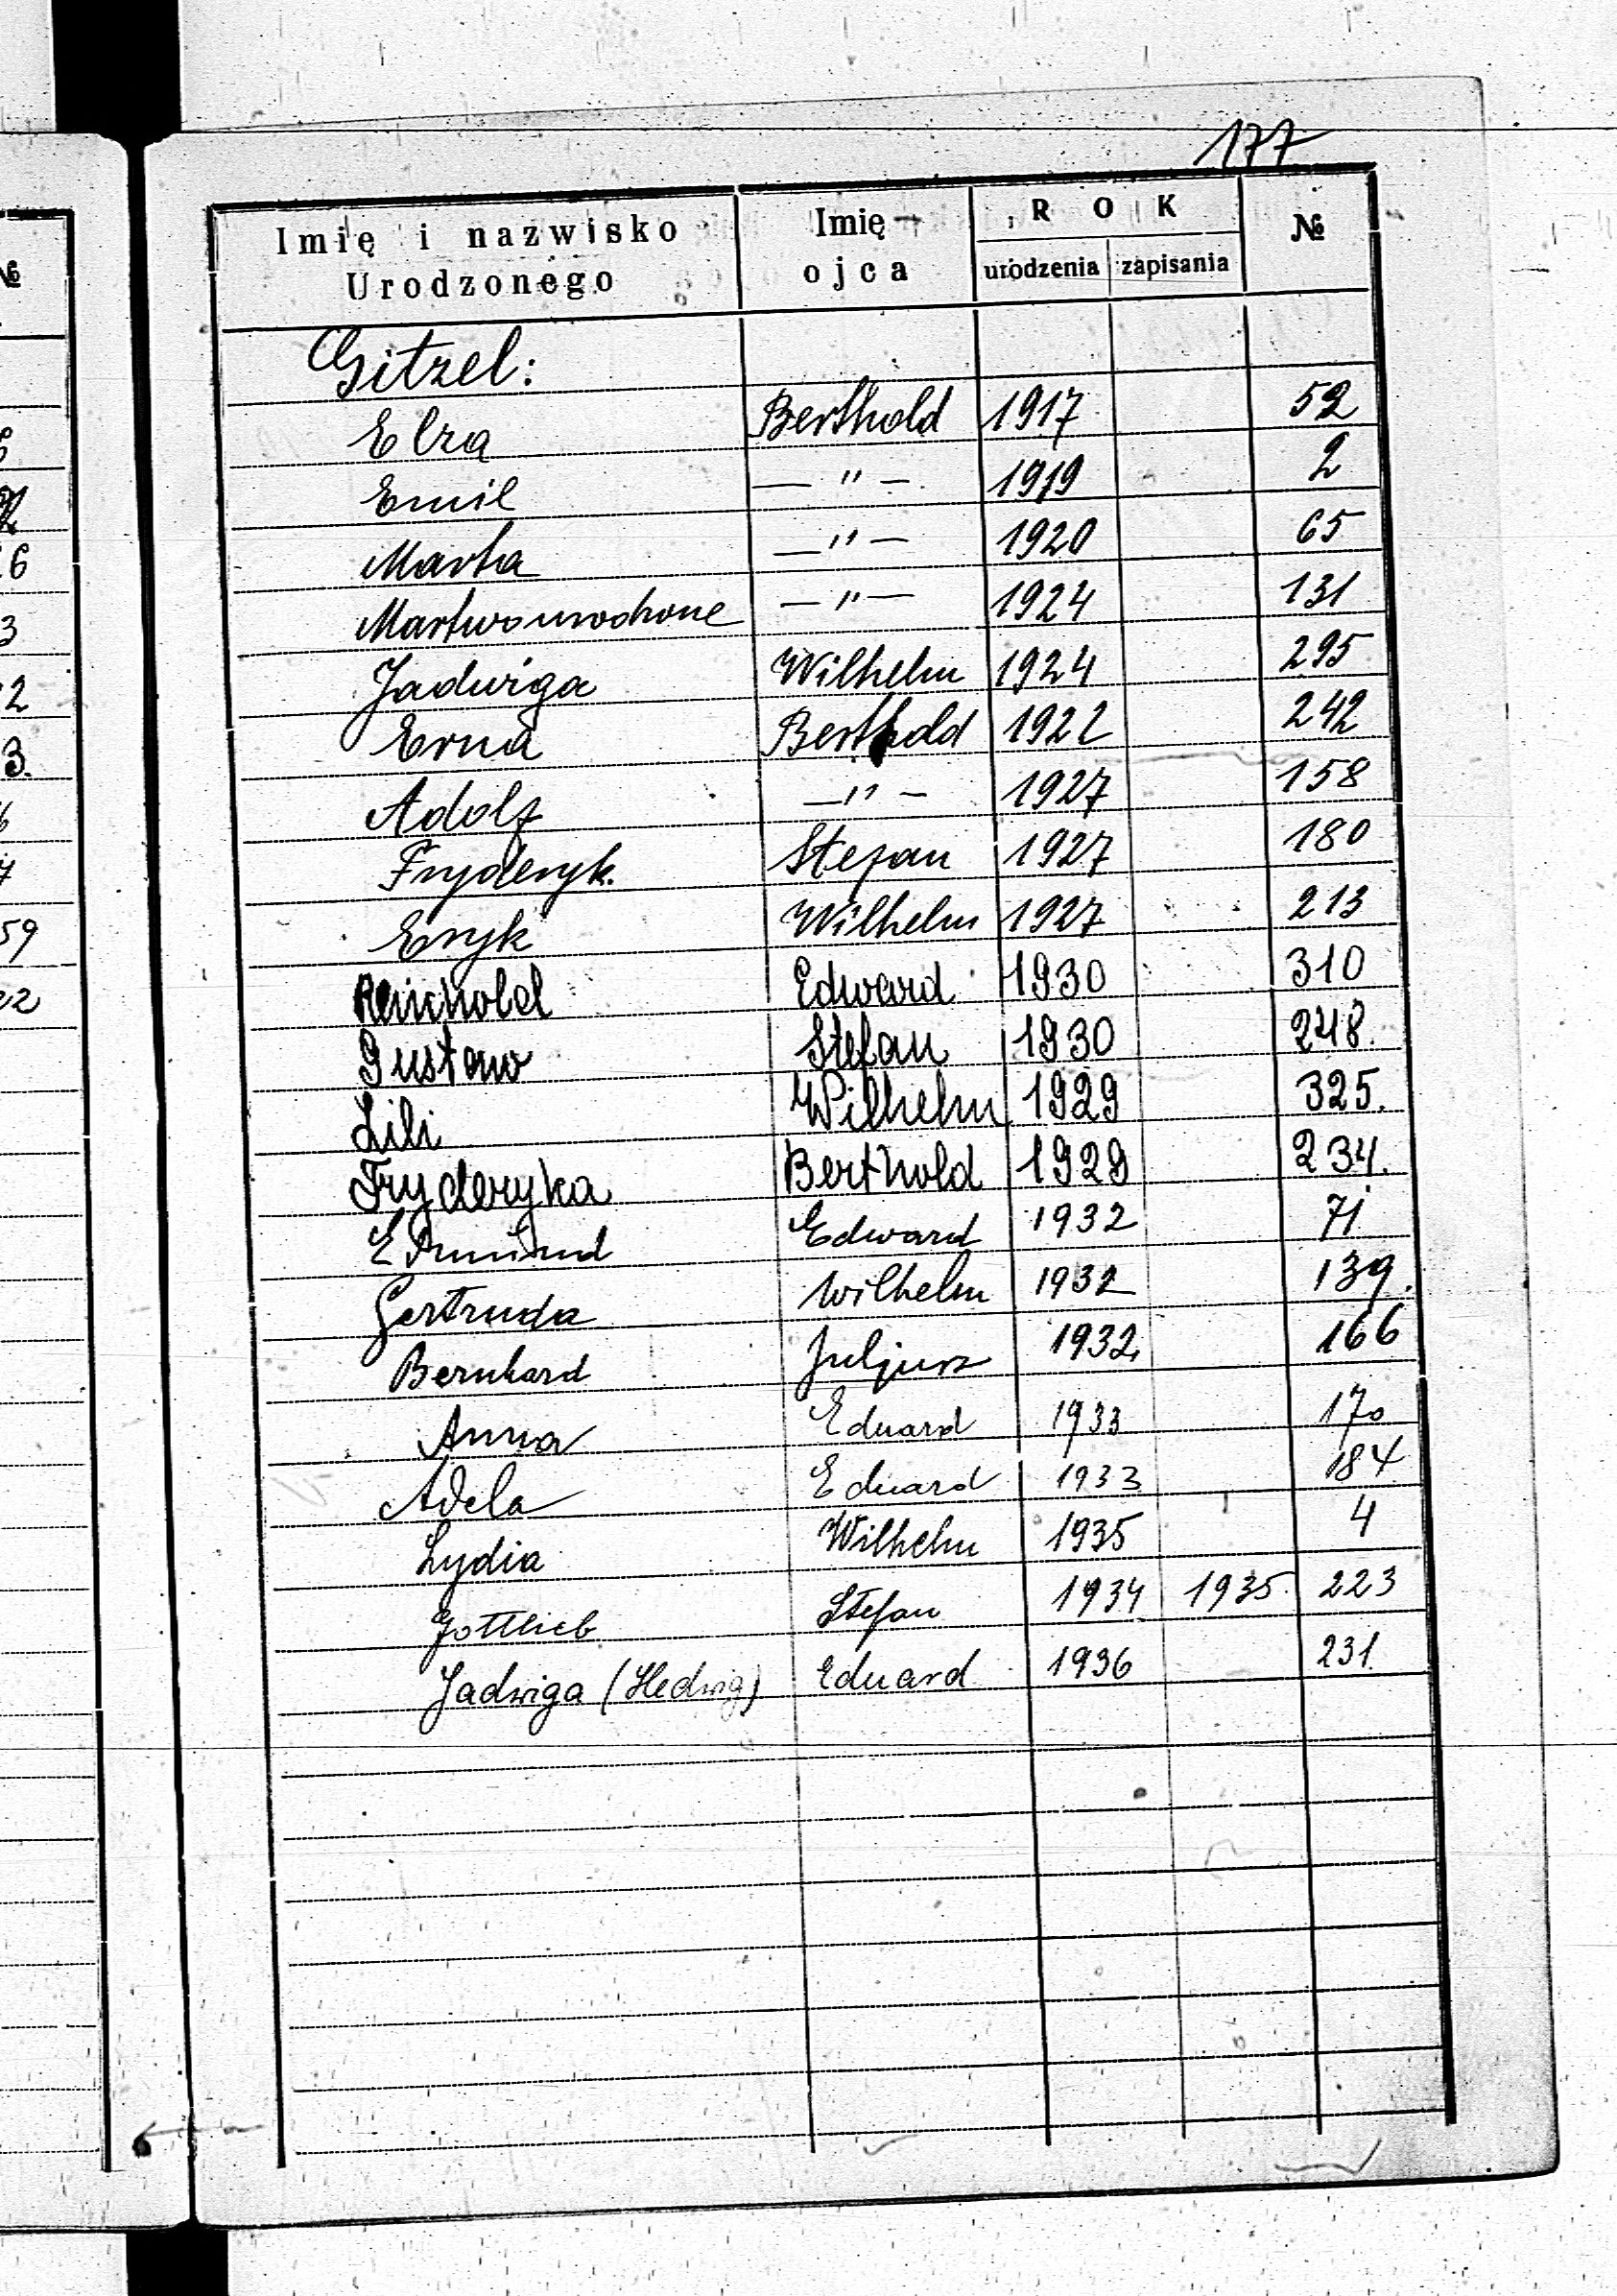 177
Imię i nazwisko Urodzonego Imię ojca ROK urodzenia zapisania №
Gitzel:
Elza Berthold 1917 52
Emil — " — 1919 2
Marta — " — 1920 65
Martwo urodzone — " — 1924 131
Jadwiga Wilhelm 1924 295
Erna Berthold 1922 242
Adolf — " — 1927 158
Fryderyk. Stefan 1927 180
Eryk Wilhelm 1927 213
Reinhold Edward 1930 310
Gustaw Stefan 1930 248.
Lili Wilhelm 1929 325.
Fryderyka Berthold 1929 234.
Edmund Edward 1932 71
Gertruda Wilhelm 1932 139.
Bernhard Juljusz 1932 166
Anna Eduard 1933 170
Adela Eduard 1933 184
Lydia Wilhelm 1935 4
Gottlieb Stefan 1934 1935 223
Jadwiga (Hedwig) Eduard 1936 231